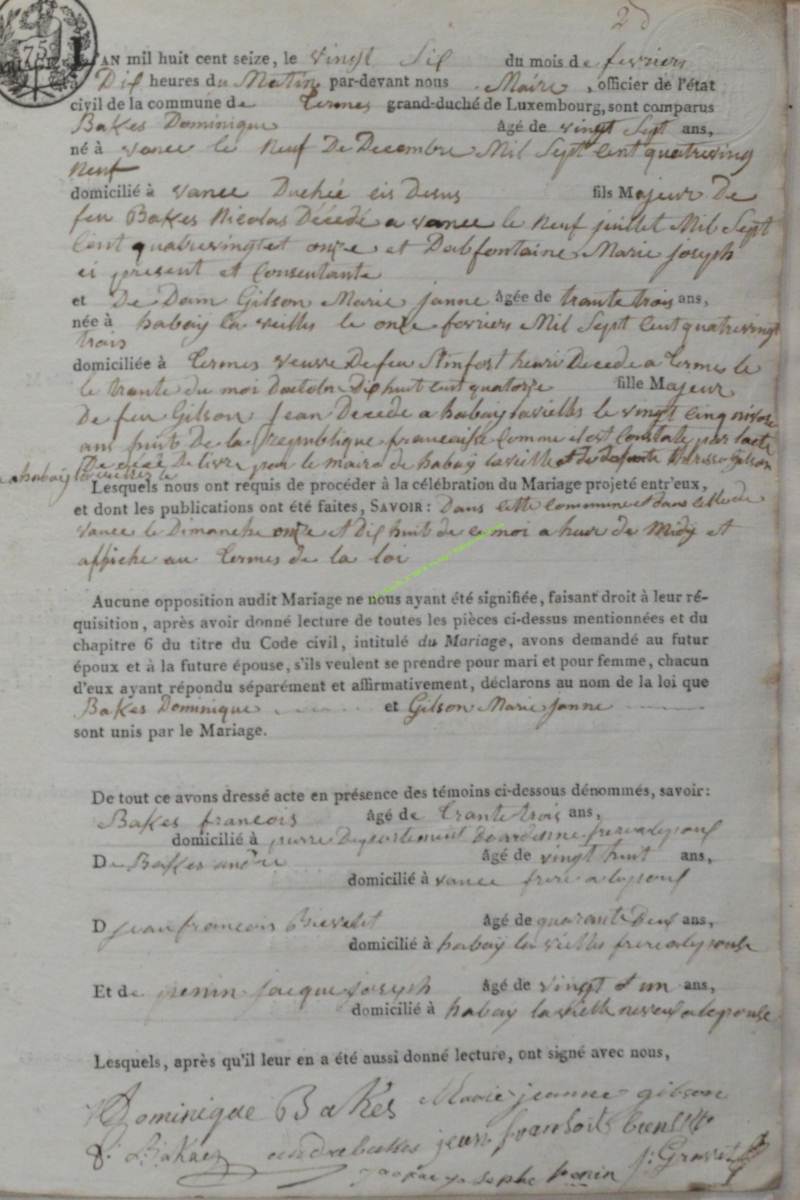 2
75
L'AN mil huit cent seize, le vingt Six du mois de fevriers
à Dix heures du Matin par-devant nous Maire, officier de l'état
civil de la commune de Termes grand-duché de Luxembourg, sont comparus
Bakes Dominique âgé de vingt Sept ans,
né à vance le neuf De Decembre Mil Sept Cent quatreving
neuf
domicilié à vance Duchée eis Desus fils Majeur De
feu Bakes Nicolas Décédé a vance le neuf juillet Mil Sept
Cent quatrevingt et onze et Dabfontaine Marie joseph
ci present et Consentante
et De Dam Gilson Marie janne âgée de trante trois ans,
née à habay la vielle le onze fevriers Mil Sept Cent quatrevingt
trois
domiciliée à Termes veuve De feu Stinfort henri Decede a Termes le
le trante du moi Doctobre Dix huit Cent quatorze fille Majeur
De feu Gilson Jean Decede a habay la vielle le vingt Cinq nivose
ans huit De la Republique francaise Comme il est Constate par lacte
De Délivre par le maire de habay la vielle et de Gilson
a habay
Lesquels nous ont requis de procéder à la célébration du Mariage projeté entr'eux,
et dont les publications ont été faites, SAVOIR: Dans cette Commune et dans celle de
vance le Dimanche onze et Dix huit de ce moi a heur de Midy et
affiche au Termes de la loi
Aucune opposition audit Mariage ne nous ayant été signifiée, faisant droit à leur ré-
quisition, après avoir donné lecture de toutes les pièces ci-dessus mentionnées et du
chapitre 6 du titre du Code civil, intitulé du Mariage, avons demandé au futur
époux et à la future épouse, s'ils veulent se prendre pour mari et pour femme, chacun
d'eux ayant répondu séparément et affirmativement, déclarons au nom de la loi que
Bakes Dominique et Gilson Marie janne
sont unis par le Mariage.
De tout ce avons dressé acte en présence des témoins ci-dessous dénommés, savoir:
Bakes francois âgé de trante trois ans,
domicilié à Departement frere a lepoux
De Bakes andre âgé de vingt huit ans,
domicilié à vance frere a lepoux
D jean francois âgé de quarante Deux ans,
domicilié à habay la vielle frere a lepouse
Et de penin jacque joseph âgé de vingt et un ans,
domicilié à habay la vielle neveux a lepouse
Lesquels, après qu'il leur en a été aussi donné lecture, ont signé avec nous,
Dominique Bakes Marie jeanne gilson
andre bakes jean
josephe penin